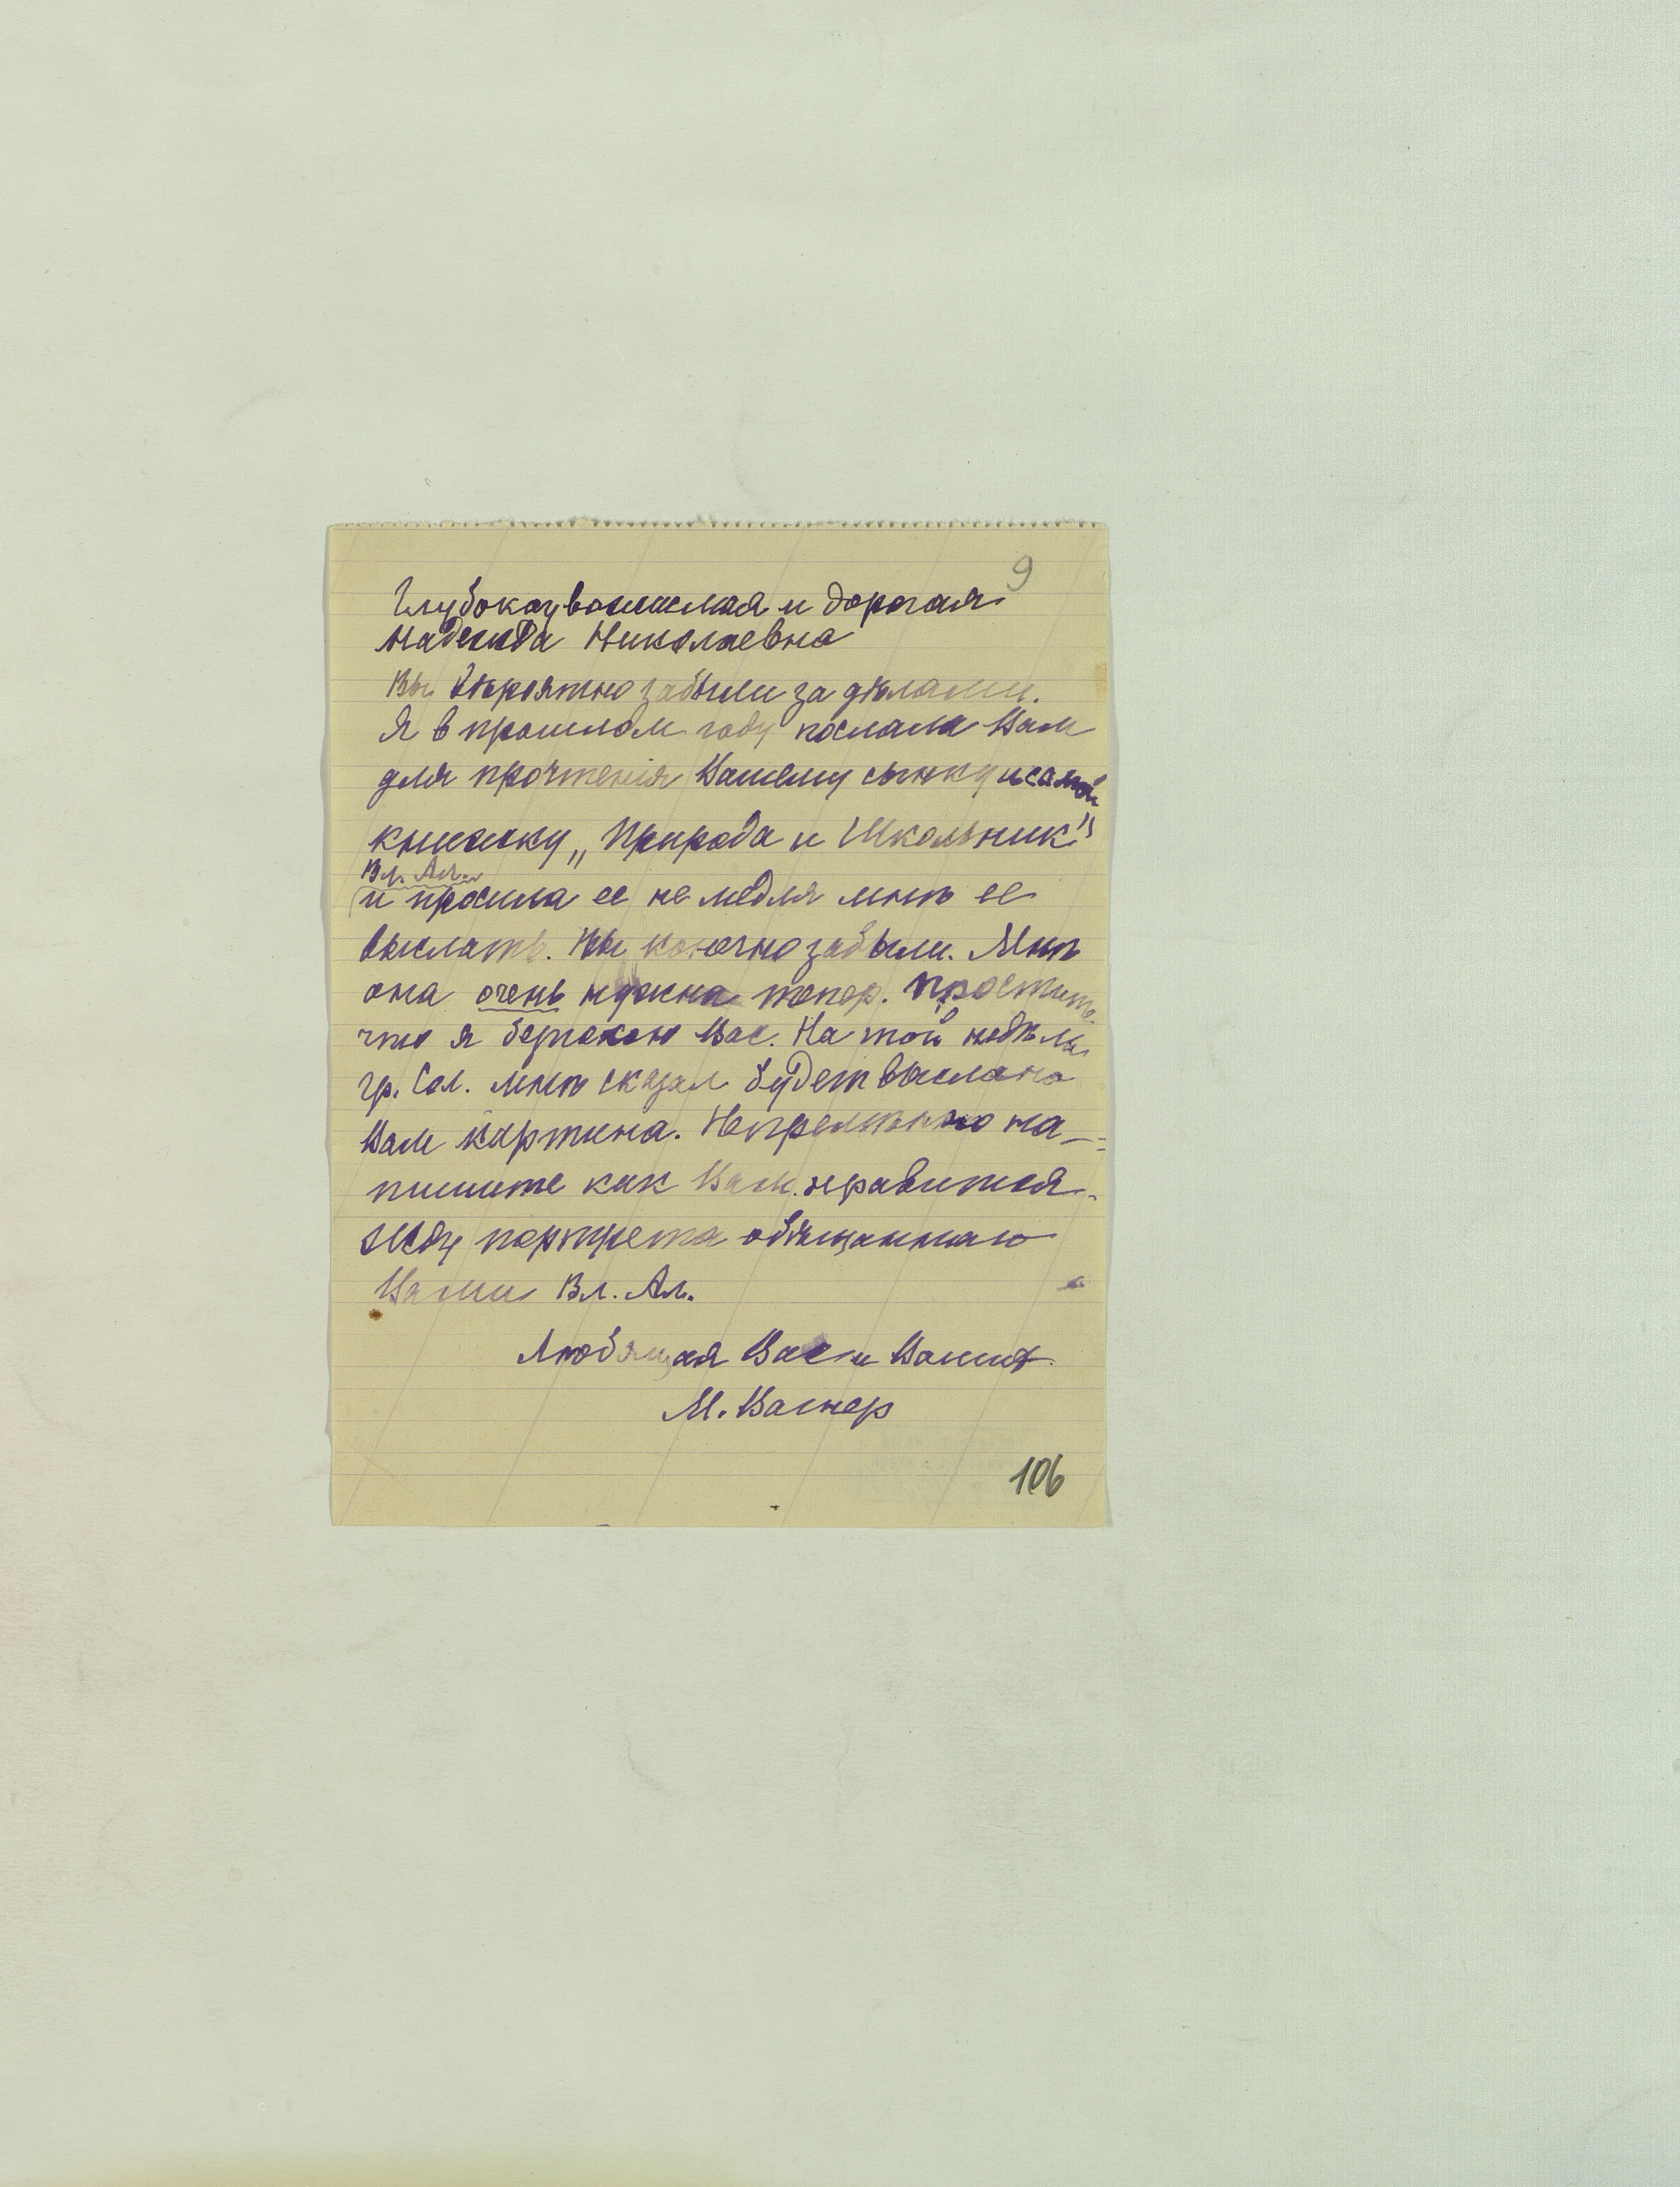 9
Глубокоуважаемая и дорогая
Надежда Николаевна
Вы вѣроятно забыли за дѣлами.
Я в прошлом году послала Вам
для прочтенія Вашему сынку и самой
книжку „Природа и Школьник"
Вл. Ал.
и просила ее не медля мнѣ ее
выслать. Вы конечно забыли. Мнѣ
она очень нужна тепер. Простите
что я безпокою Вас. На той недѣлы
гр. Сол. мнѣ сказал будет выслана
Вам картина. Непремѣнно на-
пишите как Вам нравится.
Жду портрета обѣщаннаго
Вами Вл. Ал.
Любящая Вас и Ваших
М. Вагнер
106